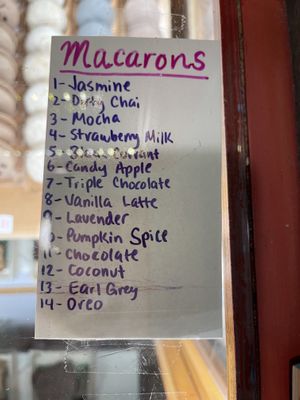 Macarons
1-Jasmine
2-Dirty Chai
3-Mocha
4-Strawberry Milk
5-Black Currant
6-Candy Apple
7-Triple Chocolate
8-Vanilla Latte
9-Lavender
10-Pumpkin Spice
11-Chocolate
12-Coconut
13-Earl Grey
14-Oreo